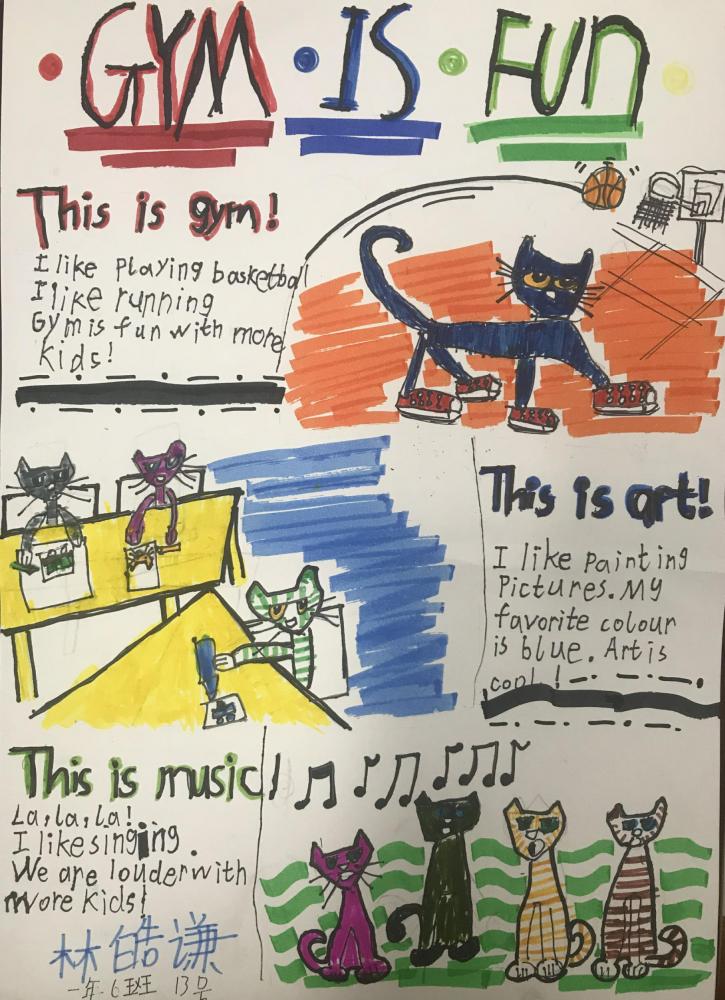 GYM IS FUN
This is gym!
I like playing basketball
I like running
Gym is fun with more
kids!
This is art!
I like painting
Pictures. My
favorite colour
is blue. Art is
cool!
This is music!
La, la, la!
I like singing.
We are louder with
more kids!
林皓谦
一年.6班 13号